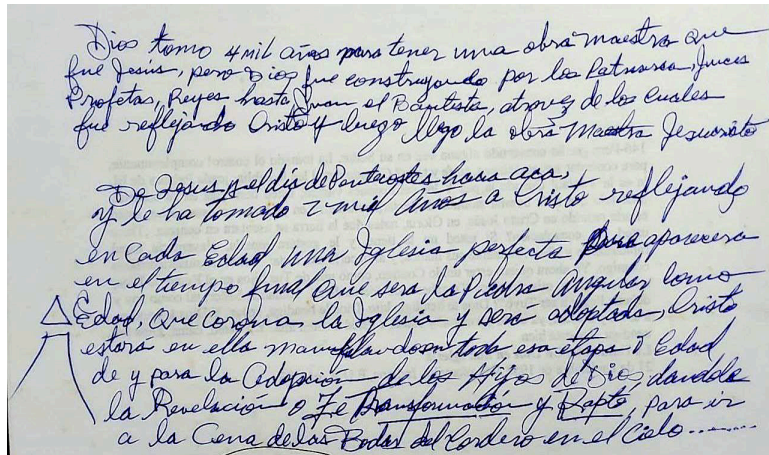 Dios tomo 4 mil años para tener una obra maestra que
fue Jesús, pero Dios fue construyendo por los Patriarcas, Jueces
Profetas, Reyes hasta Juan el Bautista, atravez de los cuales
fue reflejando Cristo y luego llego la obra Maestra Jesucristo
De Jesus y el dia de Pentecostes hacia aca,
y le ha tomado 2 mil años a Cristo reflejando
en Cada Edad una Iglesia perfecta que aparecera
en el tiempo final que sera la Piedra Angular como
Edad, que corona la Iglesia y sera adoptada, Cristo
estará en ella manifestandose en toda esa etapa o Edad
de y para la Adopción de los Hijos de Dios, dandole
la Revelación o Fe Transformación y Rapto, para ir
a la Cena de las Bodas del Cordero en el Cielo........